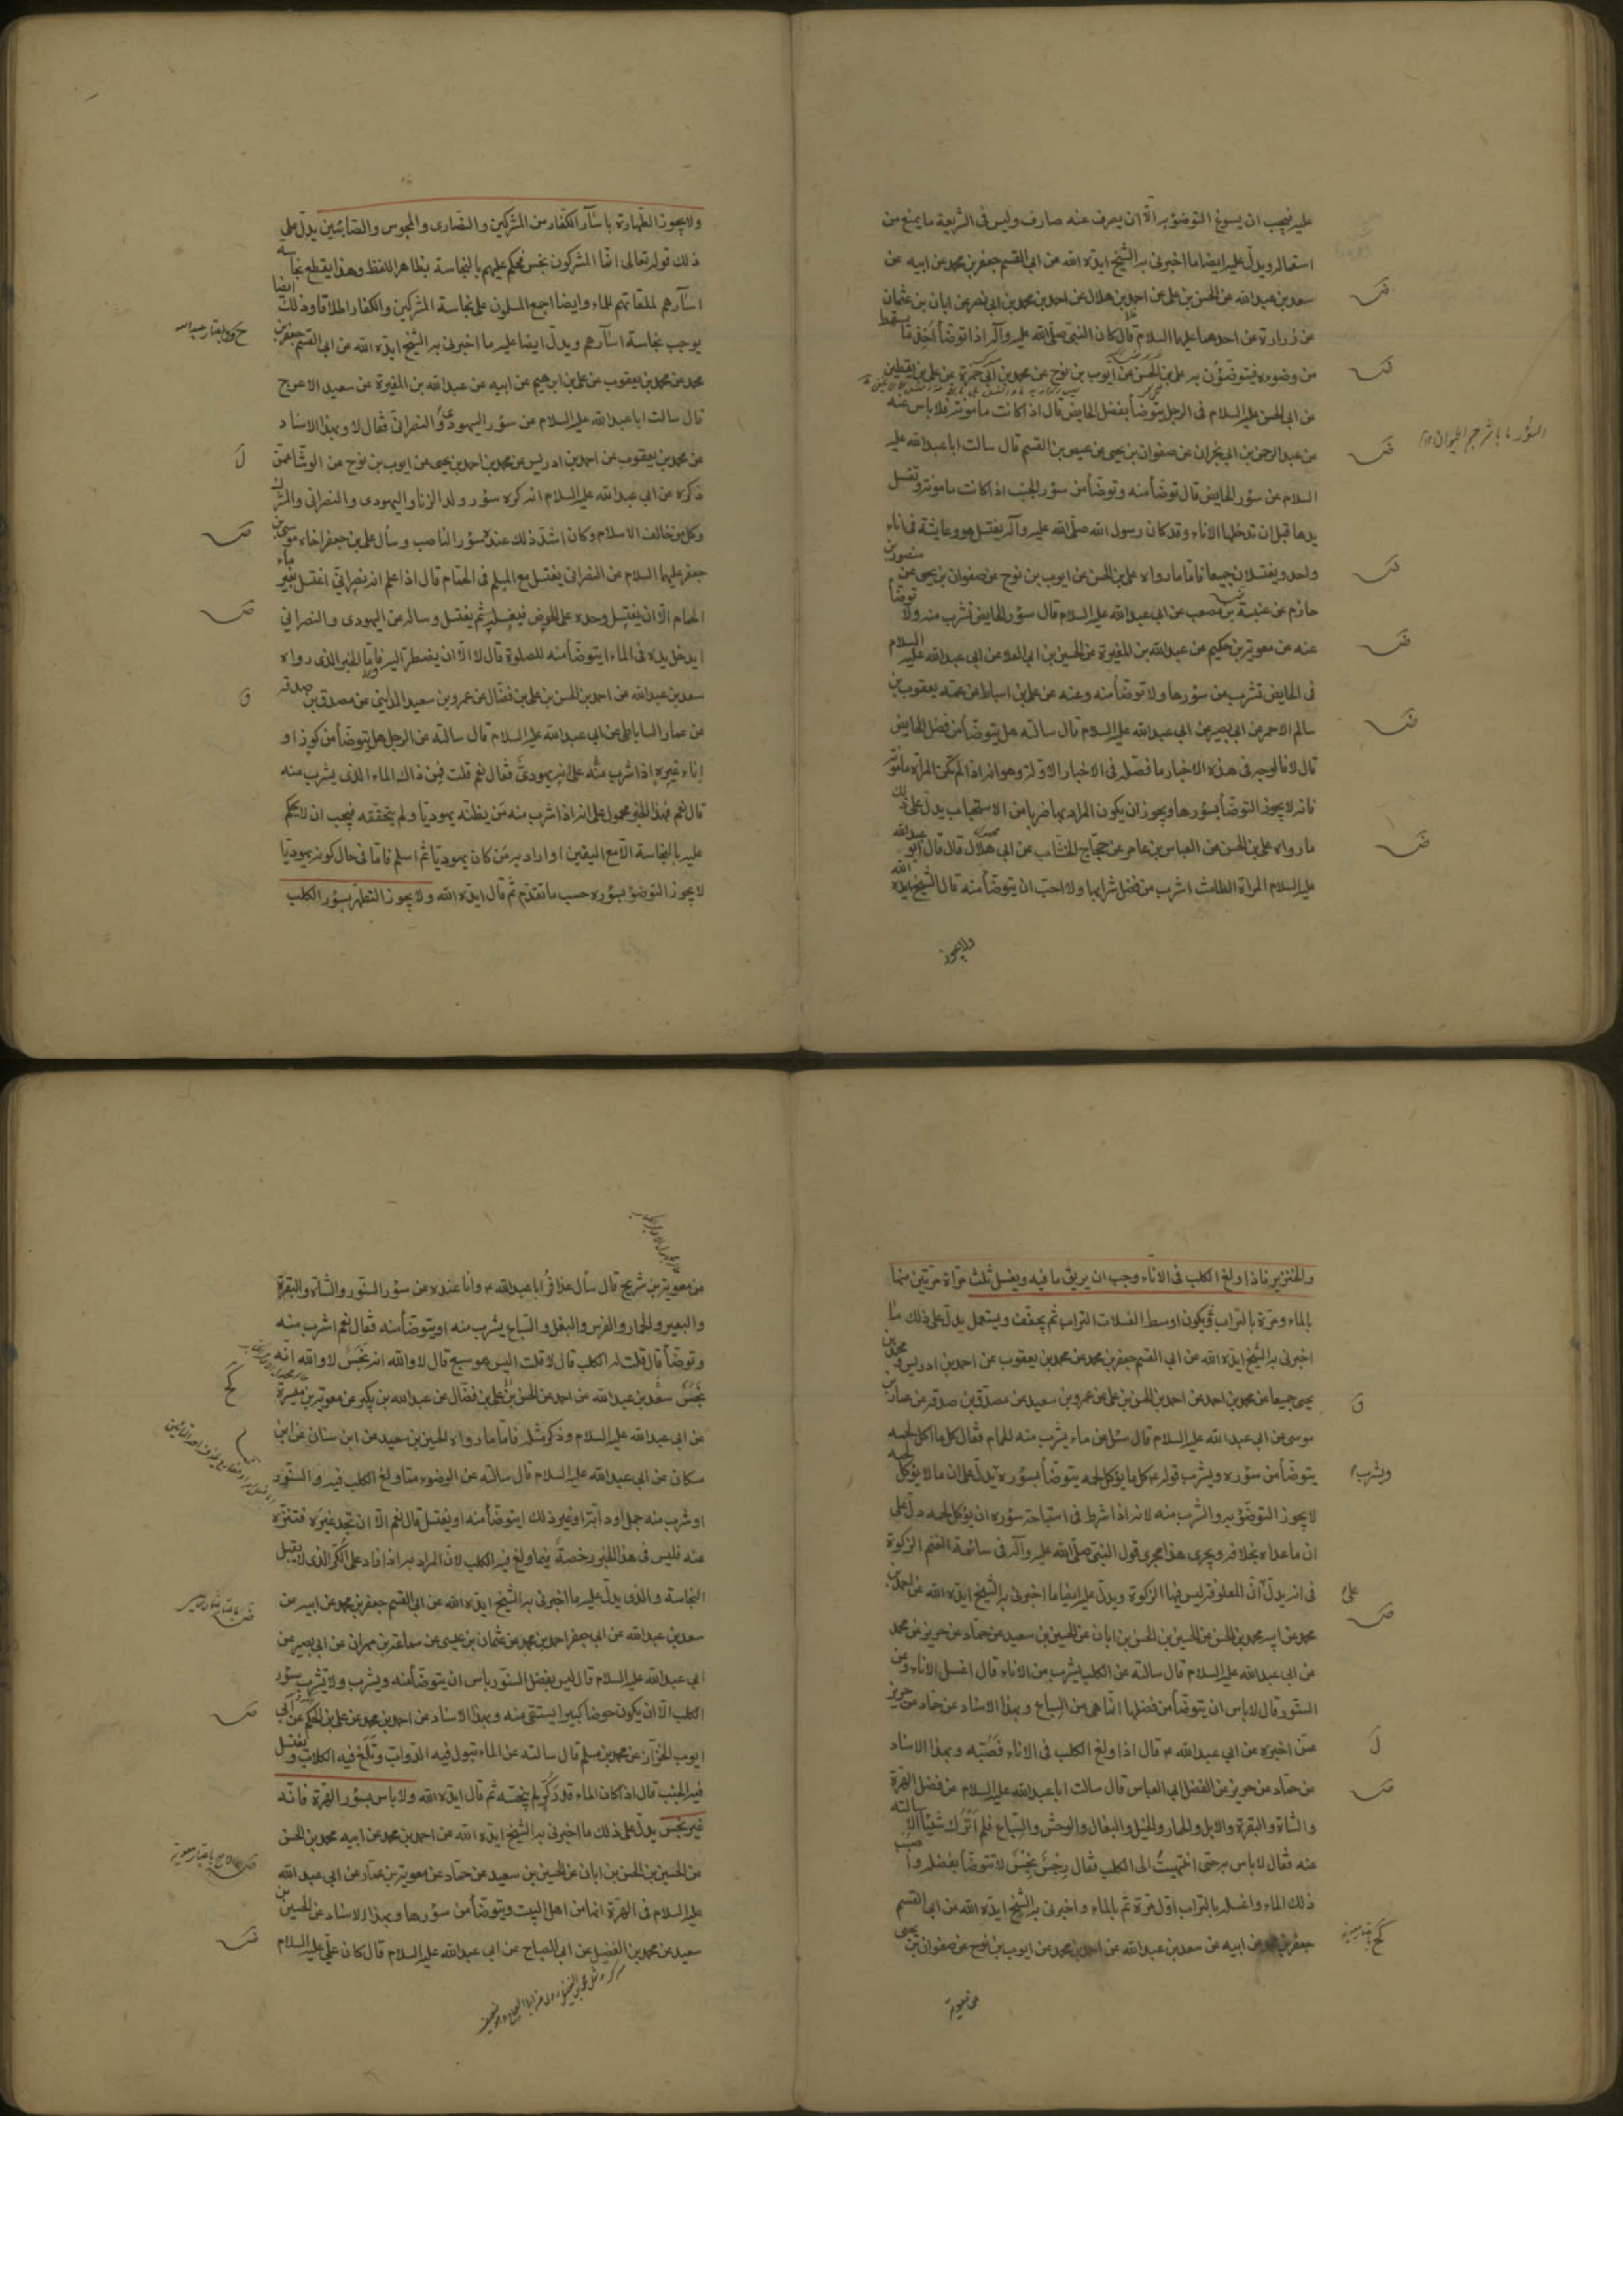 عليه فيجب ان يسوغ التوضؤ به الّا ان يصرف عنه صارف وليس فى الشريعة ما يمنع من
استعماله ويدلّ عليه ايضا ما اخبرنى به الشيخ ايده الله عن ابى القسم جعفر بن محمد عن ابيه عن
سعد بن عبد الله عن الحسن بن على عن احمد بن هلال عن احمد بن محمد بن ابى نصر عن ابان بن عثمان
عن زرارة عن احدهما عليهما السلام قال كان النبى صلّى الله عليه وآله اذا توضأ اخذ ما يسقط
من وضوءه فيتوضؤن به على بن الحسن عن ايوب بن نوح عن محمد بن ابى حمزة عن على بن يقطين
عن ابى الحسن عليه السلام فى الرجل يتوضأ بفضل الحايض قال اذا كانت مامونة فلا باس عنه
عن عبد الرحمن بن ابى نجران عن صفوان بن يحيى عن عيص بن القسم قال سالت ابا عبد الله عليه
السلام عن سؤر الحايض قال توضأ منه وتوضأ من سؤر الجنب اذا كانت مامونة وتغسل
يدها قبل ان تدخلها الاناء وقد كان رسول الله صلّى الله عليه وآله يغتسل هو وعايشة فى اناء
واحد ويغتسلان جميعا فاما ما رواه على بن الحسن عن ايوب بن نوح عن صفوان بن يحيى عن منصور بن
حازم عن عنبسة بن مصعب عن ابى عبد الله عليه السلام قال سؤر الحايض تشرب منه ولا توضأ
عنه عن معوية بن حكيم عن عبد الله بن المغيرة عن الحسين بن ابى العلا عن ابى عبد الله عليه السلام
فى الحايض تشرب من سؤرها ولا توضأ منه وعنه عن على بن اسباط عن عمه يعقوب بن
سالم الاحمر عن ابى بصير عن ابى عبد الله عليه السلام قال سالته هل يتوضأ من فضل الحايض
قال لا فالوجه فى هذه الاخبار ما فصّله فى الاخبار الاوّلة وهو انه اذا لم تكن المراة مامونة
فانه لا يجوز التوضأ بسؤرها ويجوز ان يكون المراد بها ضربا من الاستحباب يدلّ على ذلك
ما رواه على بن الحسن عن العباس بن عامر عن حجاج الخشاب عن ابى هلال قال قال ابو عبد الله
عليه السلام المراة الطامث اشرب من فضل شرابها ولا احبّ ان يتوضأ منه قال الشيخ ايده الله
ولا يجوز
ولا يجوز الطهارة باسآر الكفار من المشركين والنصارى والمجوس والصابئين يدلّ على
ذلك قوله تعالى انما المشركون نجس فحكم عليهم بالنجاسة بظاهر اللفظ وهذا يقطع نجاسة
اسآرهم لملقاتهم للماء وايضا اجمع المسلمون على نجاسة المشركين والكفار اطلاقا وذلك ايضا
يوجب نجاسة اسآرهم ويدلّ ايضا عليه ما اخبرنى به الشيخ ايده الله عن ابى القسم جعفر بن
محمد عن محمد بن يعقوب عن على بن ابرهيم عن ابيه عن عبد الله بن المغيرة عن سعيد الاعرج
قال سالت ابا عبد الله عليه السلام عن سؤر اليهودى والنصرانى فقال لا وبهذا الاسناد
عن محمد بن يعقوب عن احمد بن ادريس عن محمد بن احمد بن يحيى عن ايوب بن نوح عن الوشا عمن
ذكره عن ابى عبد الله عليه السلام انه كره سؤر ولد الزنا واليهودى والنصرانى والمشرك
وكل من خالف الاسلام وكان اشدّ ذلك عنده سؤر الناصب وسأل على بن جعفر اخاه موسى بن
جعفر عليهما السلام عن النصرانى يغتسل مع المسلم فى الحمام قال اذا علم انه نصرانى اغتسل بغير ماء
الحمام الّا ان يغتسل وحده على الحوض فيغسله ثم يغتسل وساله عن اليهودى والنصرانى
ايدخل يده فى الماء ايتوضأ منه للصلوة قال لا الّا ان يضطرّ اليه فاما الخبر الذى رواه
سعد بن عبد الله عن احمد بن الحسن بن على بن فضّال عن عمرو بن سعيد المداينى عن مصدق بن صدقه
عن عمار الساباطى عن ابى عبد الله عليه السلام قال سالته عن الرجل هل يتوضأ من كوز او
اناء غيره اذا شرب منه على انه يهودىّ فقال نعم قلت فمن ذاك الماء الذى يشرب منه
قال نعم فهذا الخبر محمول على انه اذا شرب منه من يظنّه يهوديا ولم يتحققه فيجب ان لا يحكم
عليه بالنجاسة الّا مع اليقين او اراد به من كان يهوديا ثم اسلم فاما فى حال كونه يهوديا
لا يجوز التوضؤ بسؤره حسب ما تقدّم ثم قال ايده الله ولا يجوز التطهر بسؤر الكلب
والخنزير فاذا ولغ الكلب فى الاناء وجب ان يريق ما فيه ويغسل ثلث مراة مرّتين منها
بالماء ومرّة بالتراب ويكون اوسط الغسلات التراب ثم يجفّف ويستعمل يدلّ على ذلك ما
اخبرنى به الشيخ ايده الله عن ابى القسم جعفر بن محمد عن محمد بن يعقوب عن احمد بن ادريس ومحمد بن
يحيى جميعا عن محمد بن احمد عن احمد بن الحسن بن على عن عمرو بن سعيد عن مصدّق بن صدقه عن عمار بن
موسى عن ابى عبد الله عليه السلام قال سئل عن ماء يشرب منه الحمام فقال كل ما اكل لحمه
يتوضأ من سؤره ويشرب قوله كل ما يؤكل لحمه يتوضأ بسؤره يدلّ على ان ما لا يؤكل لحمه
لا يجوز التوضؤ به والشرب منه لانه اذا شرط فى استباحة سؤره ان يؤكل لحمه دلّ على
ان ما عداه بخلافه ويجرى هذا مجرى قول النبى صلّى الله عليه وآله فى سائمة الغنم الزكوة
فى انه يدلّ انّ المعلوفة ليس فيها الزكوة ويدلّ عليه ايضا ما اخبرنى به الشيخ ايده الله عن احمد بن
محمد عن ابيه محمد بن الحسن عن الحسين بن الحسن بن ابان عن الحسين بن سعيد عن حماد عن حريز عن محمد
عن ابى عبد الله عليه السلام قال سالته عن الكلب يشرب من الاناء قال اغسل الاناء وعن
السنّور قال لا باس ان يتوضأ من فضلها انّما هى من السباع وبهذا الاسناد عن حماد عن حريز
عمّن اخبره عن ابى عبد الله قال اذا ولغ الكلب فى الاناء فصبّه وبهذا الاسناد
عن حماد عن حريز عن الفضل ابى العباس قال سالت ابا عبد الله عليه السلام عن فضل الهرة
والشاة والبقرة والابل والحمار والخيل والبغال والوحش والسباع فلم اترك شيئا الا سالته
عنه فقال لا باس به حتى انتهيت الى الكلب فقال رجس نجس لا تتوضأ بفضله واصبب
ذلك الماء واغسله بالتراب اوّل مرة ثم بالماء واخبرنى به الشيخ ايده الله عن ابى القسم
جعفر بن محمد عن ابيه عن سعد بن عبد الله عن احمد بن محمد عن ايوب بن نوح عن صفوان بن يحيى
عن معوية
عن معوية بن شريح قال سأل عذافر ابا عبد الله وانا عنده عن سؤر السنّور والشاة والبقرة
والبعير والحمار والفرس والبغل والسباع يشرب منه او يتوضأ منه فقال نعم اشرب منه
وتوضأ قال قلت له الكلب قال لا قلت اليس هو سبع قال لا والله انه نجس لا والله انه
نجس سعد بن عبد الله عن احمد عن الحسن بن على بن فضّال عن عبد الله بن بكير عن معوية بن ميسرة
عن ابى عبد الله عليه السلام وذكر مثله فاما ما رواه الحسين بن سعيد عن ابن سنان عن ابن
مسكان عن ابى عبد الله عليه السلام قال سالته عن الوضوء مما ولغ الكلب فيه والسنّور
او شرب منه جمل او دابّة او غير ذلك ايتوضأ منه او يغتسل قال نعم الّا ان تجد غيره فتنزه
عنه فليس فى هذا الخبر رخصة فيما ولغ فيه الكلب لانّ المراد به اذا زاد على الكرّ الذى لا يقبل
النجاسة والذى يدلّ عليه ما اخبرنى به الشيخ ايده الله عن ابى القسم جعفر بن محمد عن ابيه عن
سعد بن عبد الله عن ابى جعفر احمد بن محمد عن عثمان بن عيسى عن سماعة بن مهران عن ابى بصير عن
ابى عبد الله عليه السلام قال ليس بفضل السنّور باس ان يتوضأ منه ويشرب ولا تشرب سؤر
الكلب الّا ان يكون حوضا كبيرا يستقى منه وبهذا الاسناد عن احمد بن محمد عن على بن الحكم عن ابى
ايوب الخزّاز عن محمد بن مسلم قال سالته عن الماء تبول فيه الدوابّ وتلغ فيه الكلاب ويغتسل
فيه الجنب قال اذا كان الماء قدر كرّ لم ينجّسه ثم قال ايده الله ولا باس بسؤر الهرّة فانه
غير نجس يدلّ على ذلك ما اخبرنى به الشيخ ايده الله عن احمد بن محمد عن ابيه محمد بن الحسن
عن الحسين بن الحسن بن ابان عن الحسين بن سعيد عن حماد عن معوية بن عمار عن ابى عبد الله
عليه السلام فى الهرّة انها من اهل البيت ويتوضأ من سؤرها وبهذا الاسناد عن الحسين بن
سعيد عن محمد بن الفضيل عن ابى الصباح عن ابى عبد الله عليه السلام قال كان على عليه السلام